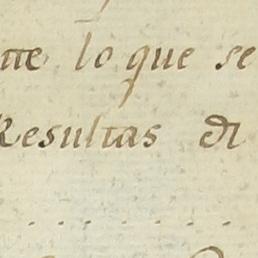 tte lo que se
Resultas di
. . . . . .